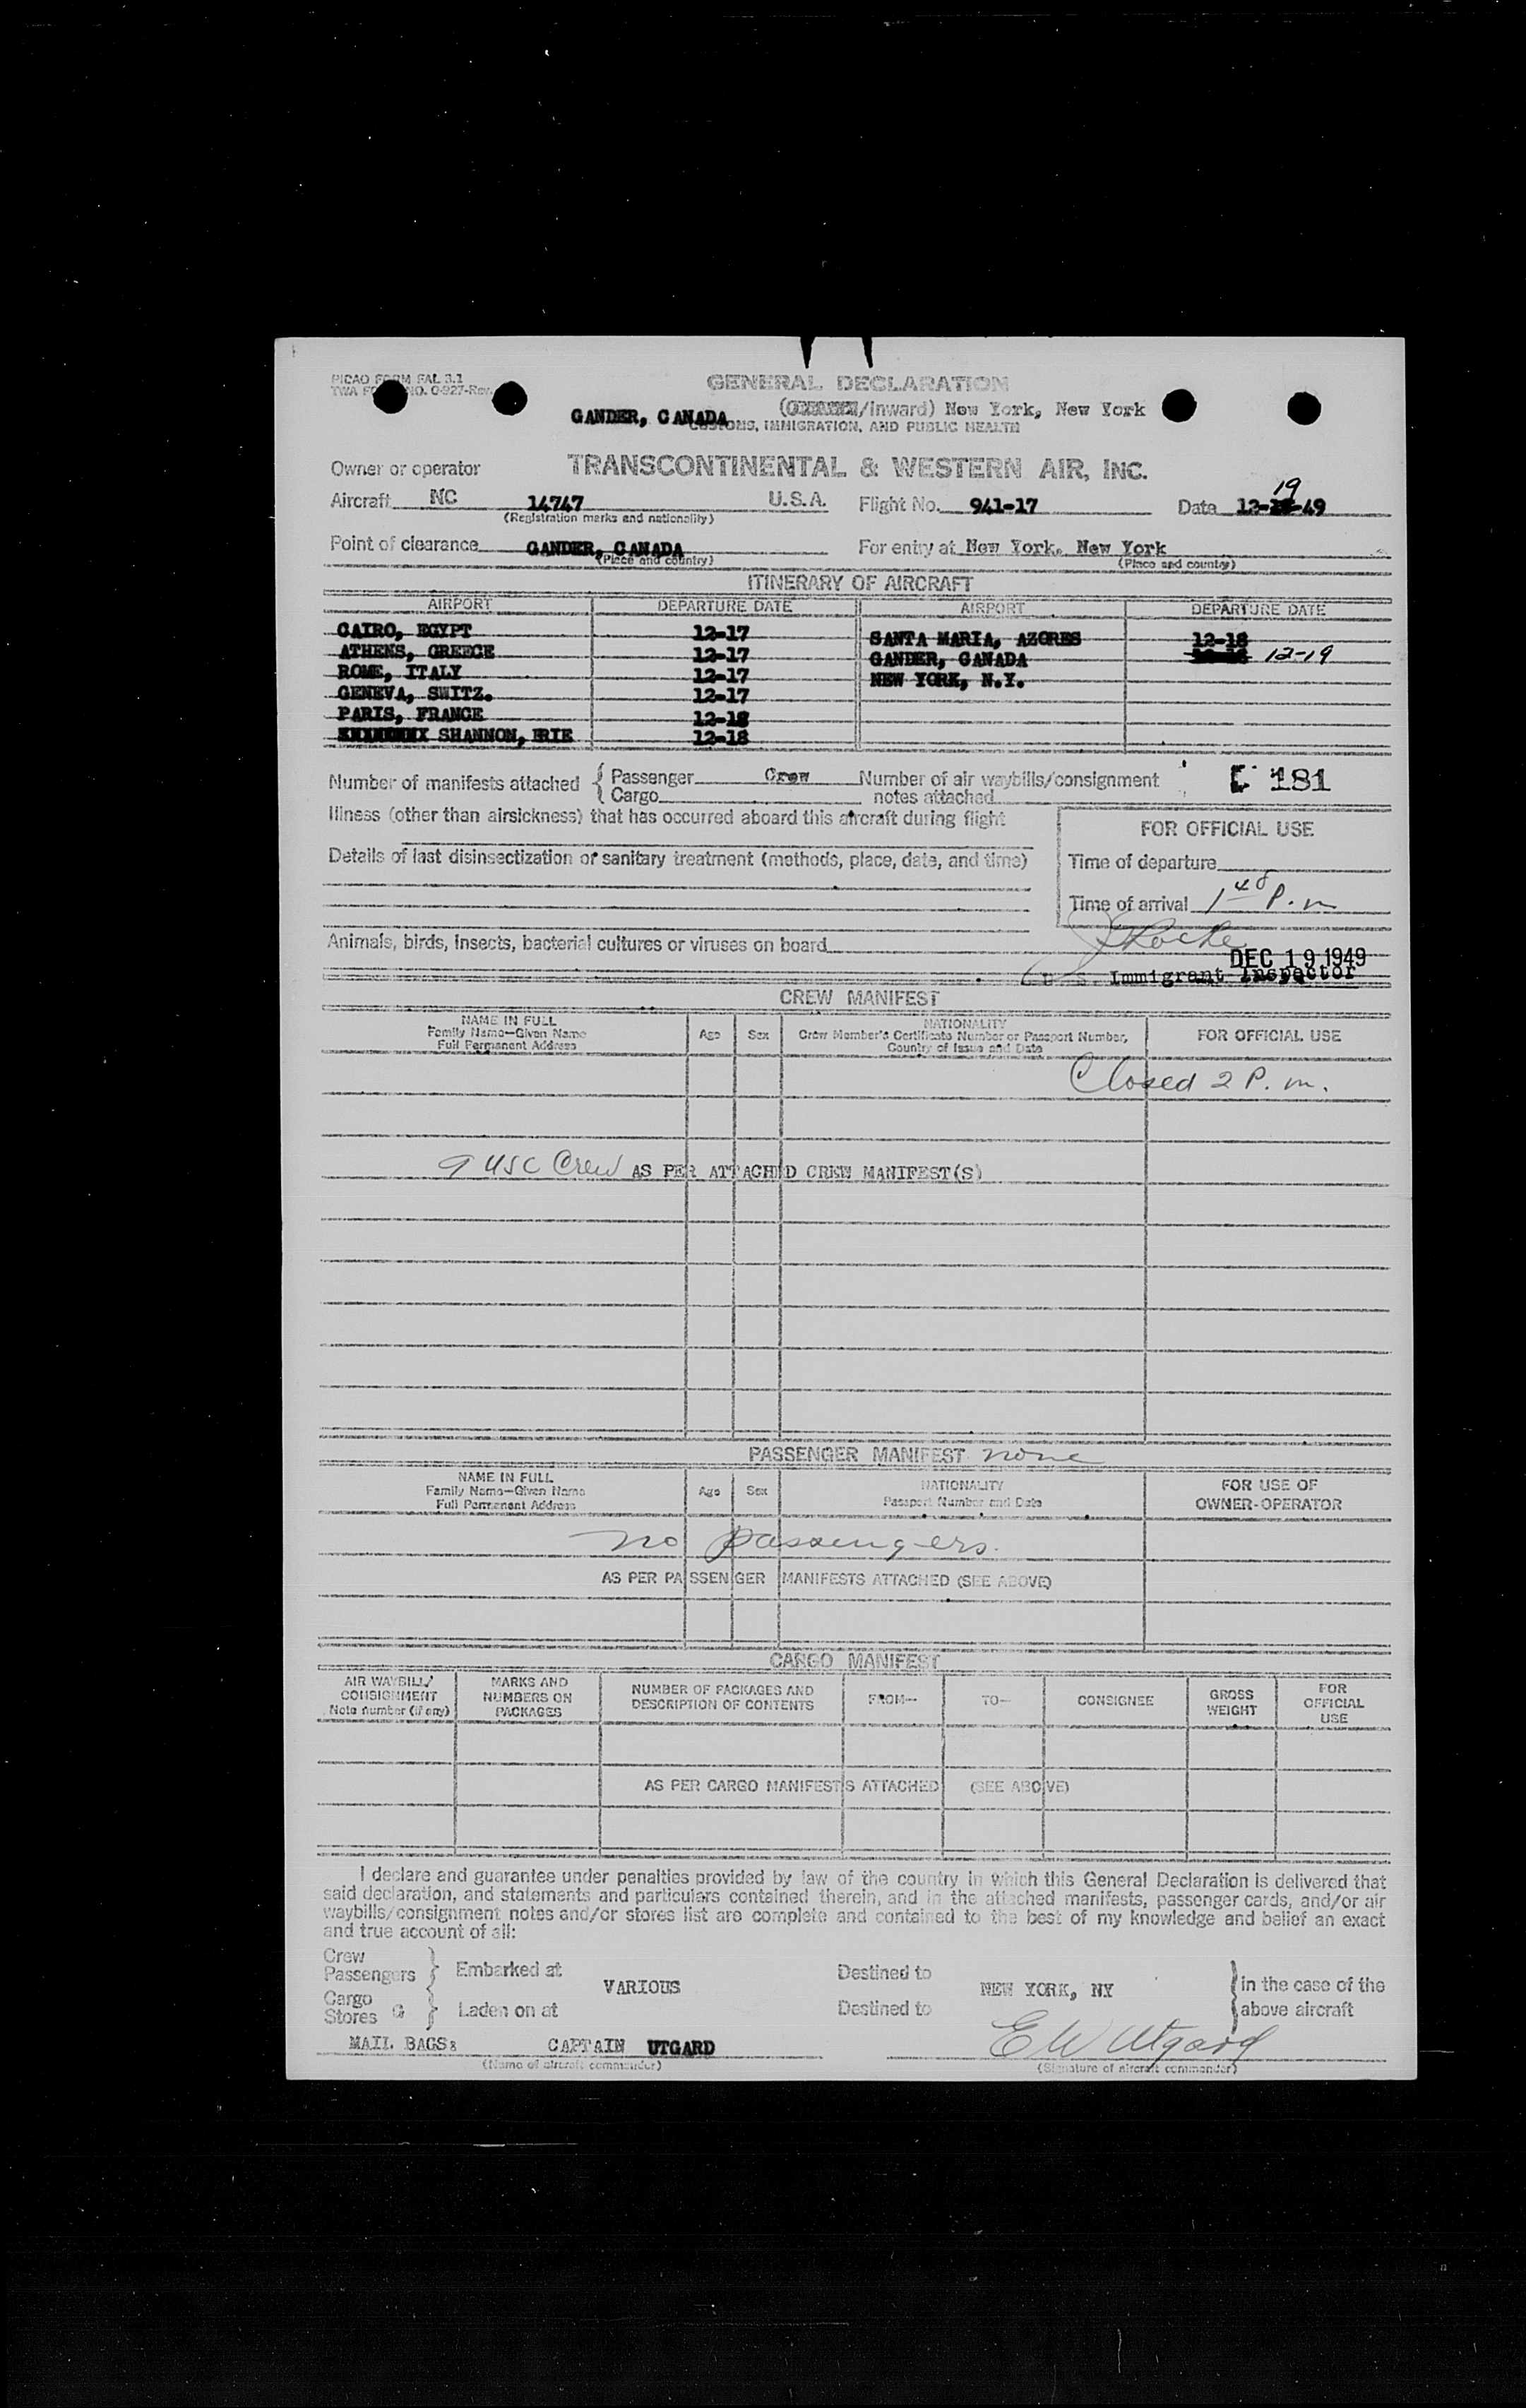 PICAO FORM FAL 3.1
TWA FORM NO. 0-927-Rev.
GENERAL DECLARATION
(/Inward) New York, New York
GANDER, CANADA
CUSTOMS, IMMIGRATION, AND PUBLIC HEALTH
Owner or operator TRANSCONTINENTAL & WESTERN AIR, INC.
Aircraft NC 14747 U.S.A. Flight No. 941-17 Date 12-19-49
(Registration marks and nationality)
Point of clearance GANDER, CANADA For entry at New York, New York
(Place and country) (Place and country)
ITINERARY OF AIRCRAFT
AIRPORT DEPARTURE DATE AIRPORT DEPARTURE DATE
CAIRO, EGYPT 12-17 SANTA MARIA, AZORES 12-18
ATHENS, GREECE 12-17 GANDER, CANADA 12-19
ROME, ITALY 12-17 NEW YORK, N.Y.
GENEVA, SWITZ. 12-17
PARIS, FRANCE 12-18
SHANNON, ERIE 12-18
Number of manifests attached { Passenger Crew Number of air waybills/consignment 181
Cargo notes attached
Illness (other than airsickness) that has occurred aboard this aircraft during flight
FOR OFFICIAL USE
Details of last disinsectization or sanitary treatment (methods, place, date, and time)
Time of departure
Time of arrival 1 40 P.m
Animals, birds, insects, bacterial cultures or viruses on board
DEC 19 1949
U. S. Immigrant Inspector
CREW MANIFEST
NAME IN FULL
Family Name—Given Name
Full Permanent Address
Age Sex
NATIONALITY
Crew Member's Certificate Number or Passport Number,
Country of Issue and Date
FOR OFFICIAL USE
Closed 2 P.m.
9 USC Crew AS PER ATTACHED CREW MANIFEST(S)
PASSENGER MANIFEST none
NAME IN FULL
Family Name—Given Name
Full Permanent Address
Age Sex
NATIONALITY
Passport Number and Date
FOR USE OF
OWNER-OPERATOR
no passengers.
AS PER PASSENGER MANIFESTS ATTACHED (SEE ABOVE)
CARGO MANIFEST
AIR WAYBILL/
CONSIGNMENT
Note number (if any)
MARKS AND
NUMBERS ON
PACKAGES
NUMBER OF PACKAGES AND
DESCRIPTION OF CONTENTS
FROM— TO— CONSIGNEE
GROSS
WEIGHT
FOR
OFFICIAL
USE
AS PER CARGO MANIFESTS ATTACHED (SEE ABOVE)
I declare and guarantee under penalties provided by law of the country in which this General Declaration is delivered that
said declaration, and statements and particulars contained therein, and in the attached manifests, passenger cards, and/or air
waybills/consignment notes and/or stores list are complete and contained to the best of my knowledge and belief an exact
and true account of all:
Crew
Passengers } Embarked at VARIOUS Destined to NEW YORK, NY } in the case of the
Cargo
Stores } Laden on at Destined to above aircraft
MAIL BAGS: CAPTAIN UTGARD E W Utgard
(Name of aircraft commander) (Signature of aircraft commander)